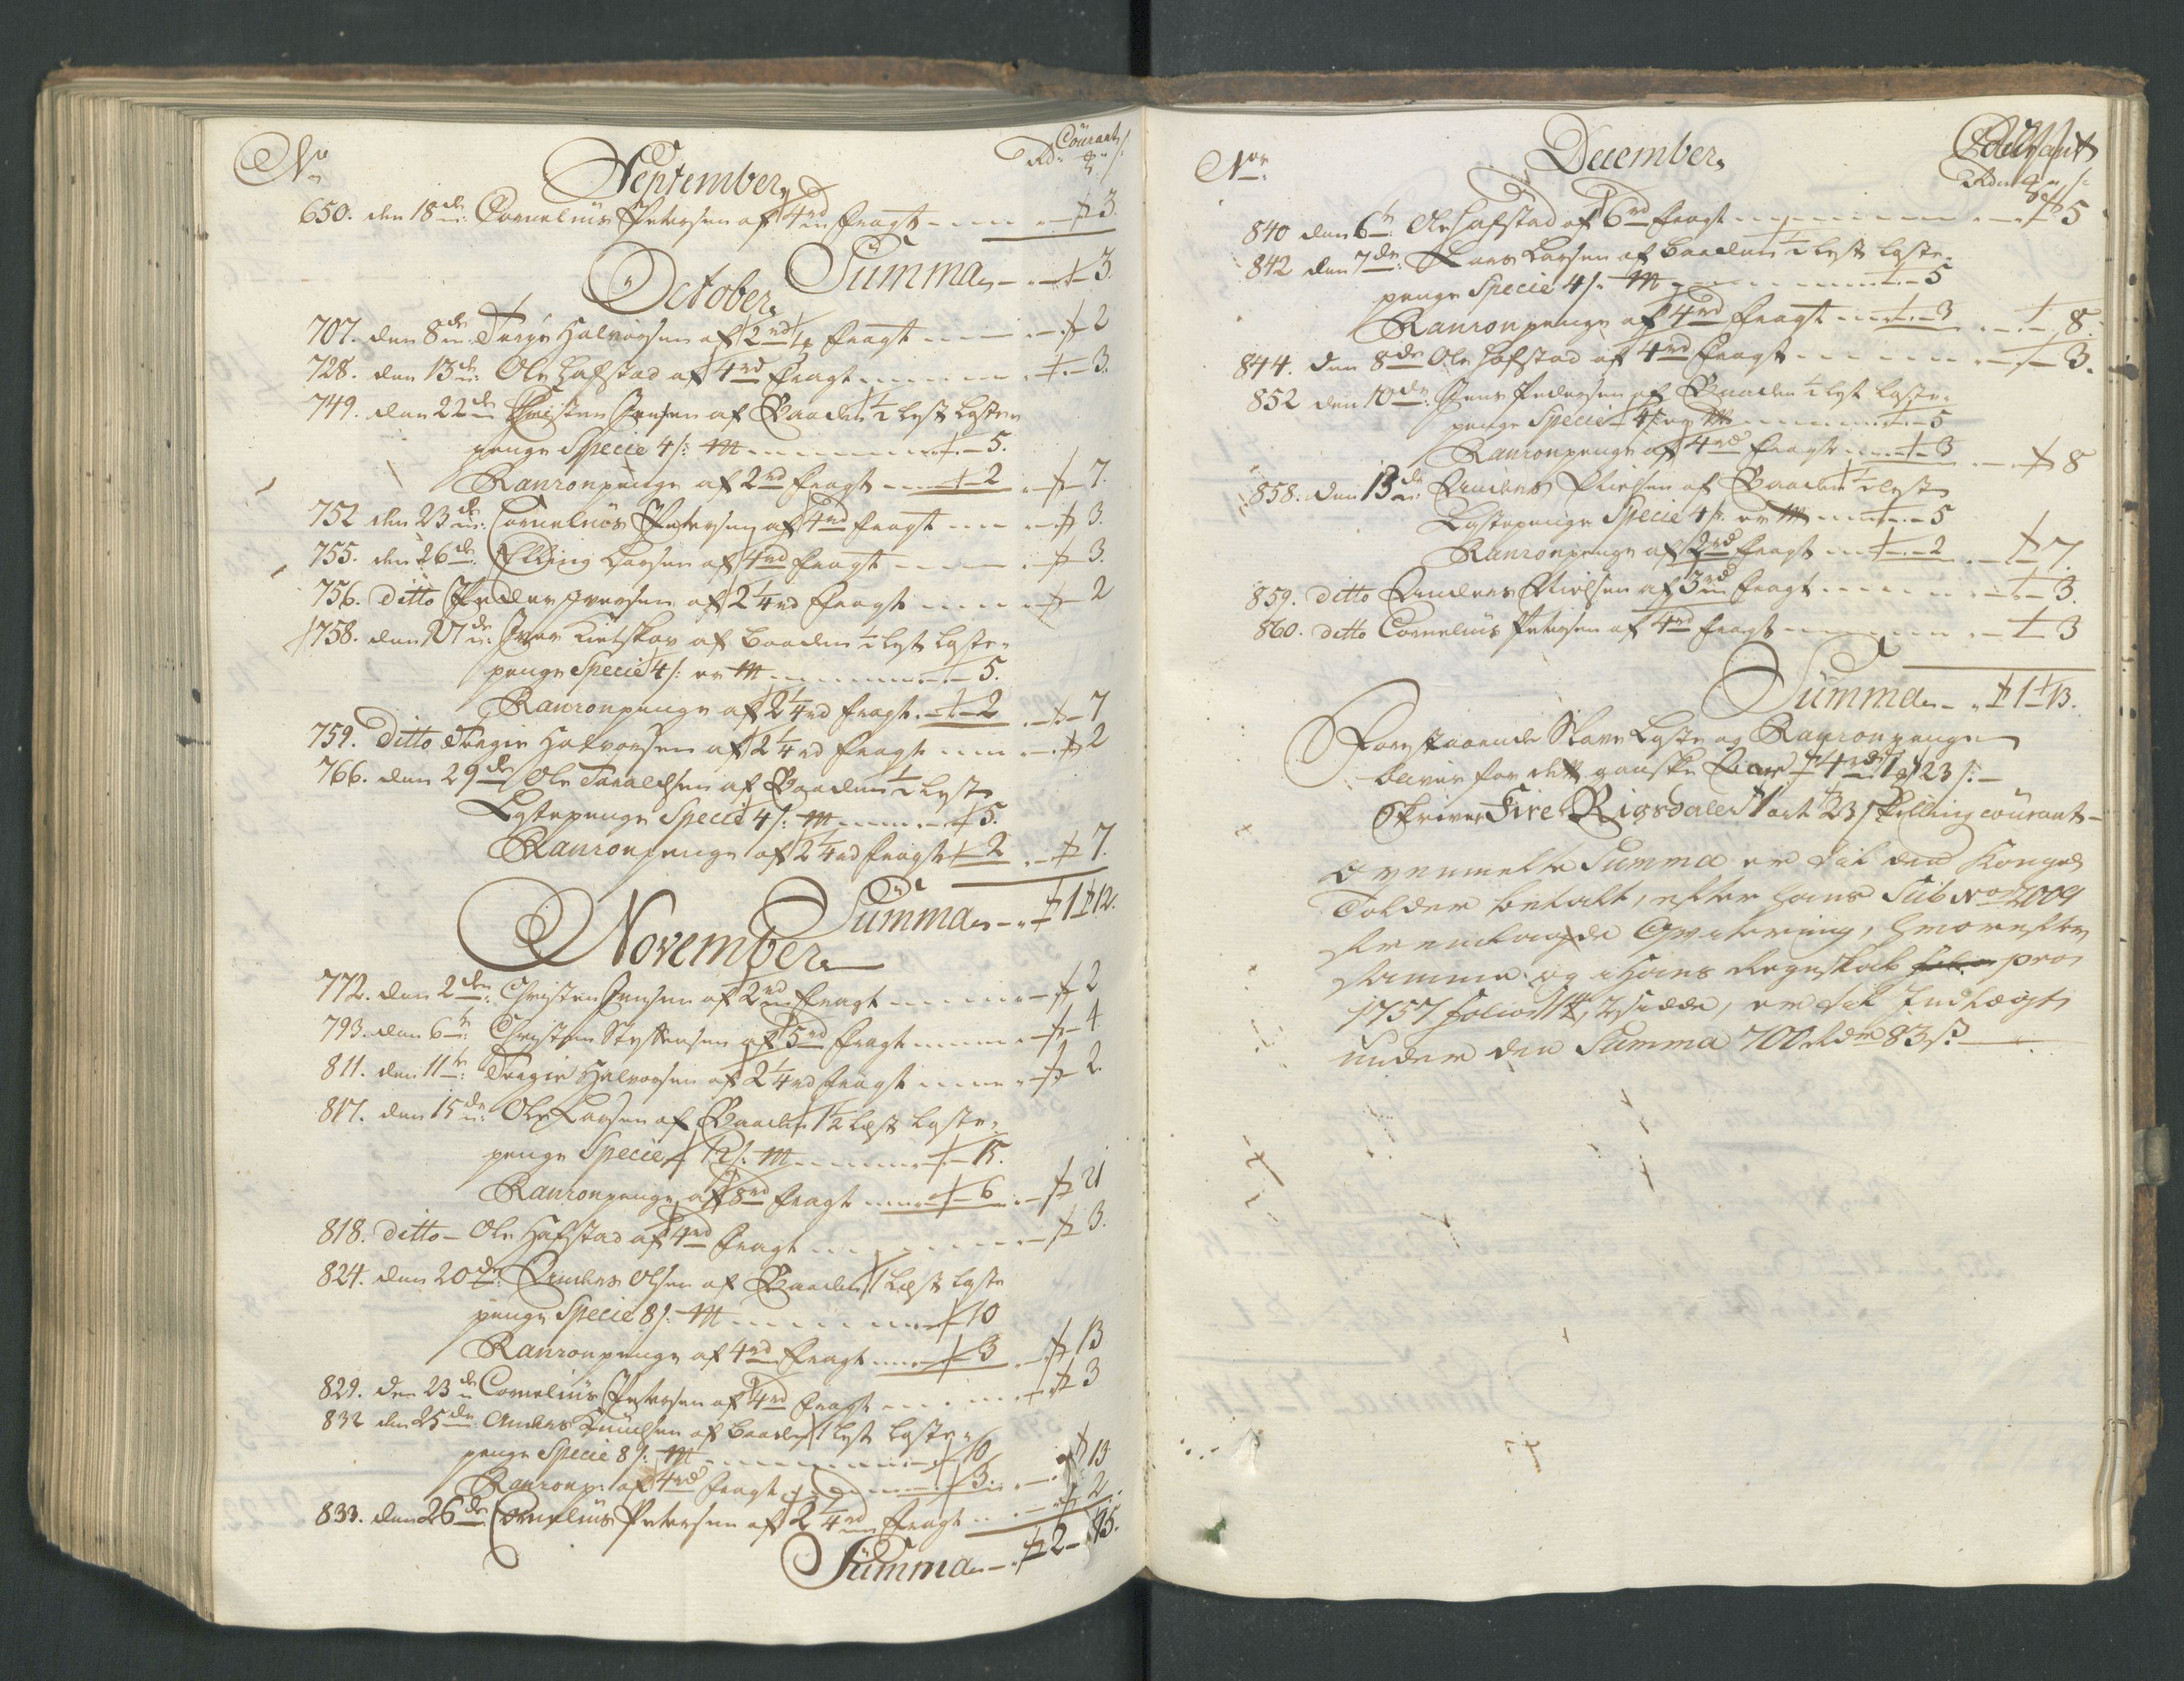 No
September
Courant
Rdr
650. den 18de: Cornelius Petersen af 4rd fragt - - - - 3.
Summa - - 3.
October
707. den 8de Terje Halvorsen af 2rd 1/4 fragt - - - - 2
728. den 13de: Ole Hafstad af 4rd fragt - - - - - 3.
749. den 22de Christen Jensen af Baaden 1/2 lest Leste-
penge Specie 4 /: - - - - 5.
Ranzonpenge af 2rd fragt - - - 2 - - 7.
752 den 23de: Cornelius Petersen af 4rd fragt - - - - 3.
755. den 26de: Elling Larsen af 4rd fragt - - - - 3.
756. ditto Peder Iversen af 2 1/4 rd fragt - - - - 2
758. den 27de: Iver af Baaden 1/2 lest Leste-
penge Specie 4 /: er - - - - 5.
Ranzonpenge af 2 1/4 rd fragt - - 2 - - 7
759. Ditto Tergie Halvorsen af 2 1/4 rd fragt - - - - 2
766. den 29de Ole Taraldsen af Baaden 1/2 Lest
Lestepenge Specie 4 /: - - - - 5.
Ranzonpenge af 2 1/4 rd fragt - 2 - - 7.
Summa - - 1 - 12.
November
772. den 2den: Christen Jensen af 2rd fragt - - - - 2
793. den 6te: Christen Steffensen af 5rd fragt - - - - 4.
811. den 11te: Tergie Halvorsen af 2 1/4 rd fragt - - - - 2.
817. den 15de: Ole Larsen af Baaden 1 1/2 Lest Leste-
penge Specie 12 /: - - - - 15.
Ranzonpenge af 8rd fragt - - - 6 - - 21
818. ditto - Ole Hafstad af 4rd fragt - - - - 3.
824. den 20de: Anders Olsen af Baaden 1 Lest Leste
penge Specie 8 /: - - - - 10
Ranzonpenge af 4rd fragt - - - 3 - - 13
829. den 23de Cornelius Petersen af 4rd fragt - - - - 3
832 den 25de: Anders Knudsen af Baaden 1 lest Leste-
penge Specie 8 /: - - - - 10
Ranzonpe: af 4rd fragt - - - 3. - - 13
833. den 26de: Cornelius Petersen af 2 1/4 rd fragt - - - - 2.
Summa - - 2 - 15.
Nor
December
Courant
Rdr
840 den 6te: Ole Hafstad af 6rd fragt - - - - 5
842 den 7de: Lars Larsen af Baaden 1/2 lest Leste-
penge Specie 4 /: - - - - 5
Ranzonpenge af 4rd fragt - - 3 - - 8.
844. den 8de Ole Hafstad af 4rd fragt - - - - 3.
852 den 10de: Jens Pedersen af Baaden 1/2 lest Leste-
penge Specie 4 /: er - - - - 5
Ranzonpenge af 4rd fragt - - 3 - - 8
858. den 13de: Anders Nielsen af Baaden 1/2 Lest
Lestepenge Specie 4 /: er - - - 5
Ranzonpenge af 2rd fragt - - 2 - - 7.
859. ditto Anders Nielsen af 3rd fragt - - - - 3.
860. ditto Cornelius Petersen af 4rd fragt - - - - 3
Summa - - 1 - 13.
Forestaaende Slave Leste og Ranzonpenge
beløber for dett gandske Aar 4rd 1 23 /: -
Skriver Fire Rigsdaler 1 ort 23 skilling courant -
Ovenmelte Summa er til den Kongel
Tolder betalt, efter hans Sub No 2009
fremlagde Qvitering, hvorefter
samme og i Hans Regnskab pro
1757 folio 114, 2 Siide, er til Indtægt
under den Summa 700 Rdr 83 s: